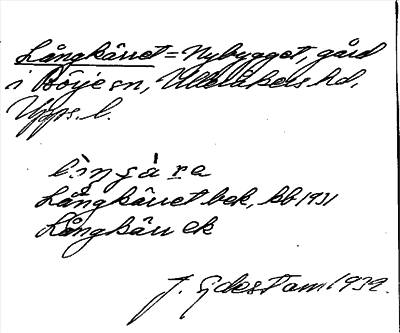 Långkärret = Nybygget, gård
i Börje sn, Ulleråkers hd,
Upps. l.
Långkärret bek, kb 1931
Långkärr ek
J. Gidestam 1939.